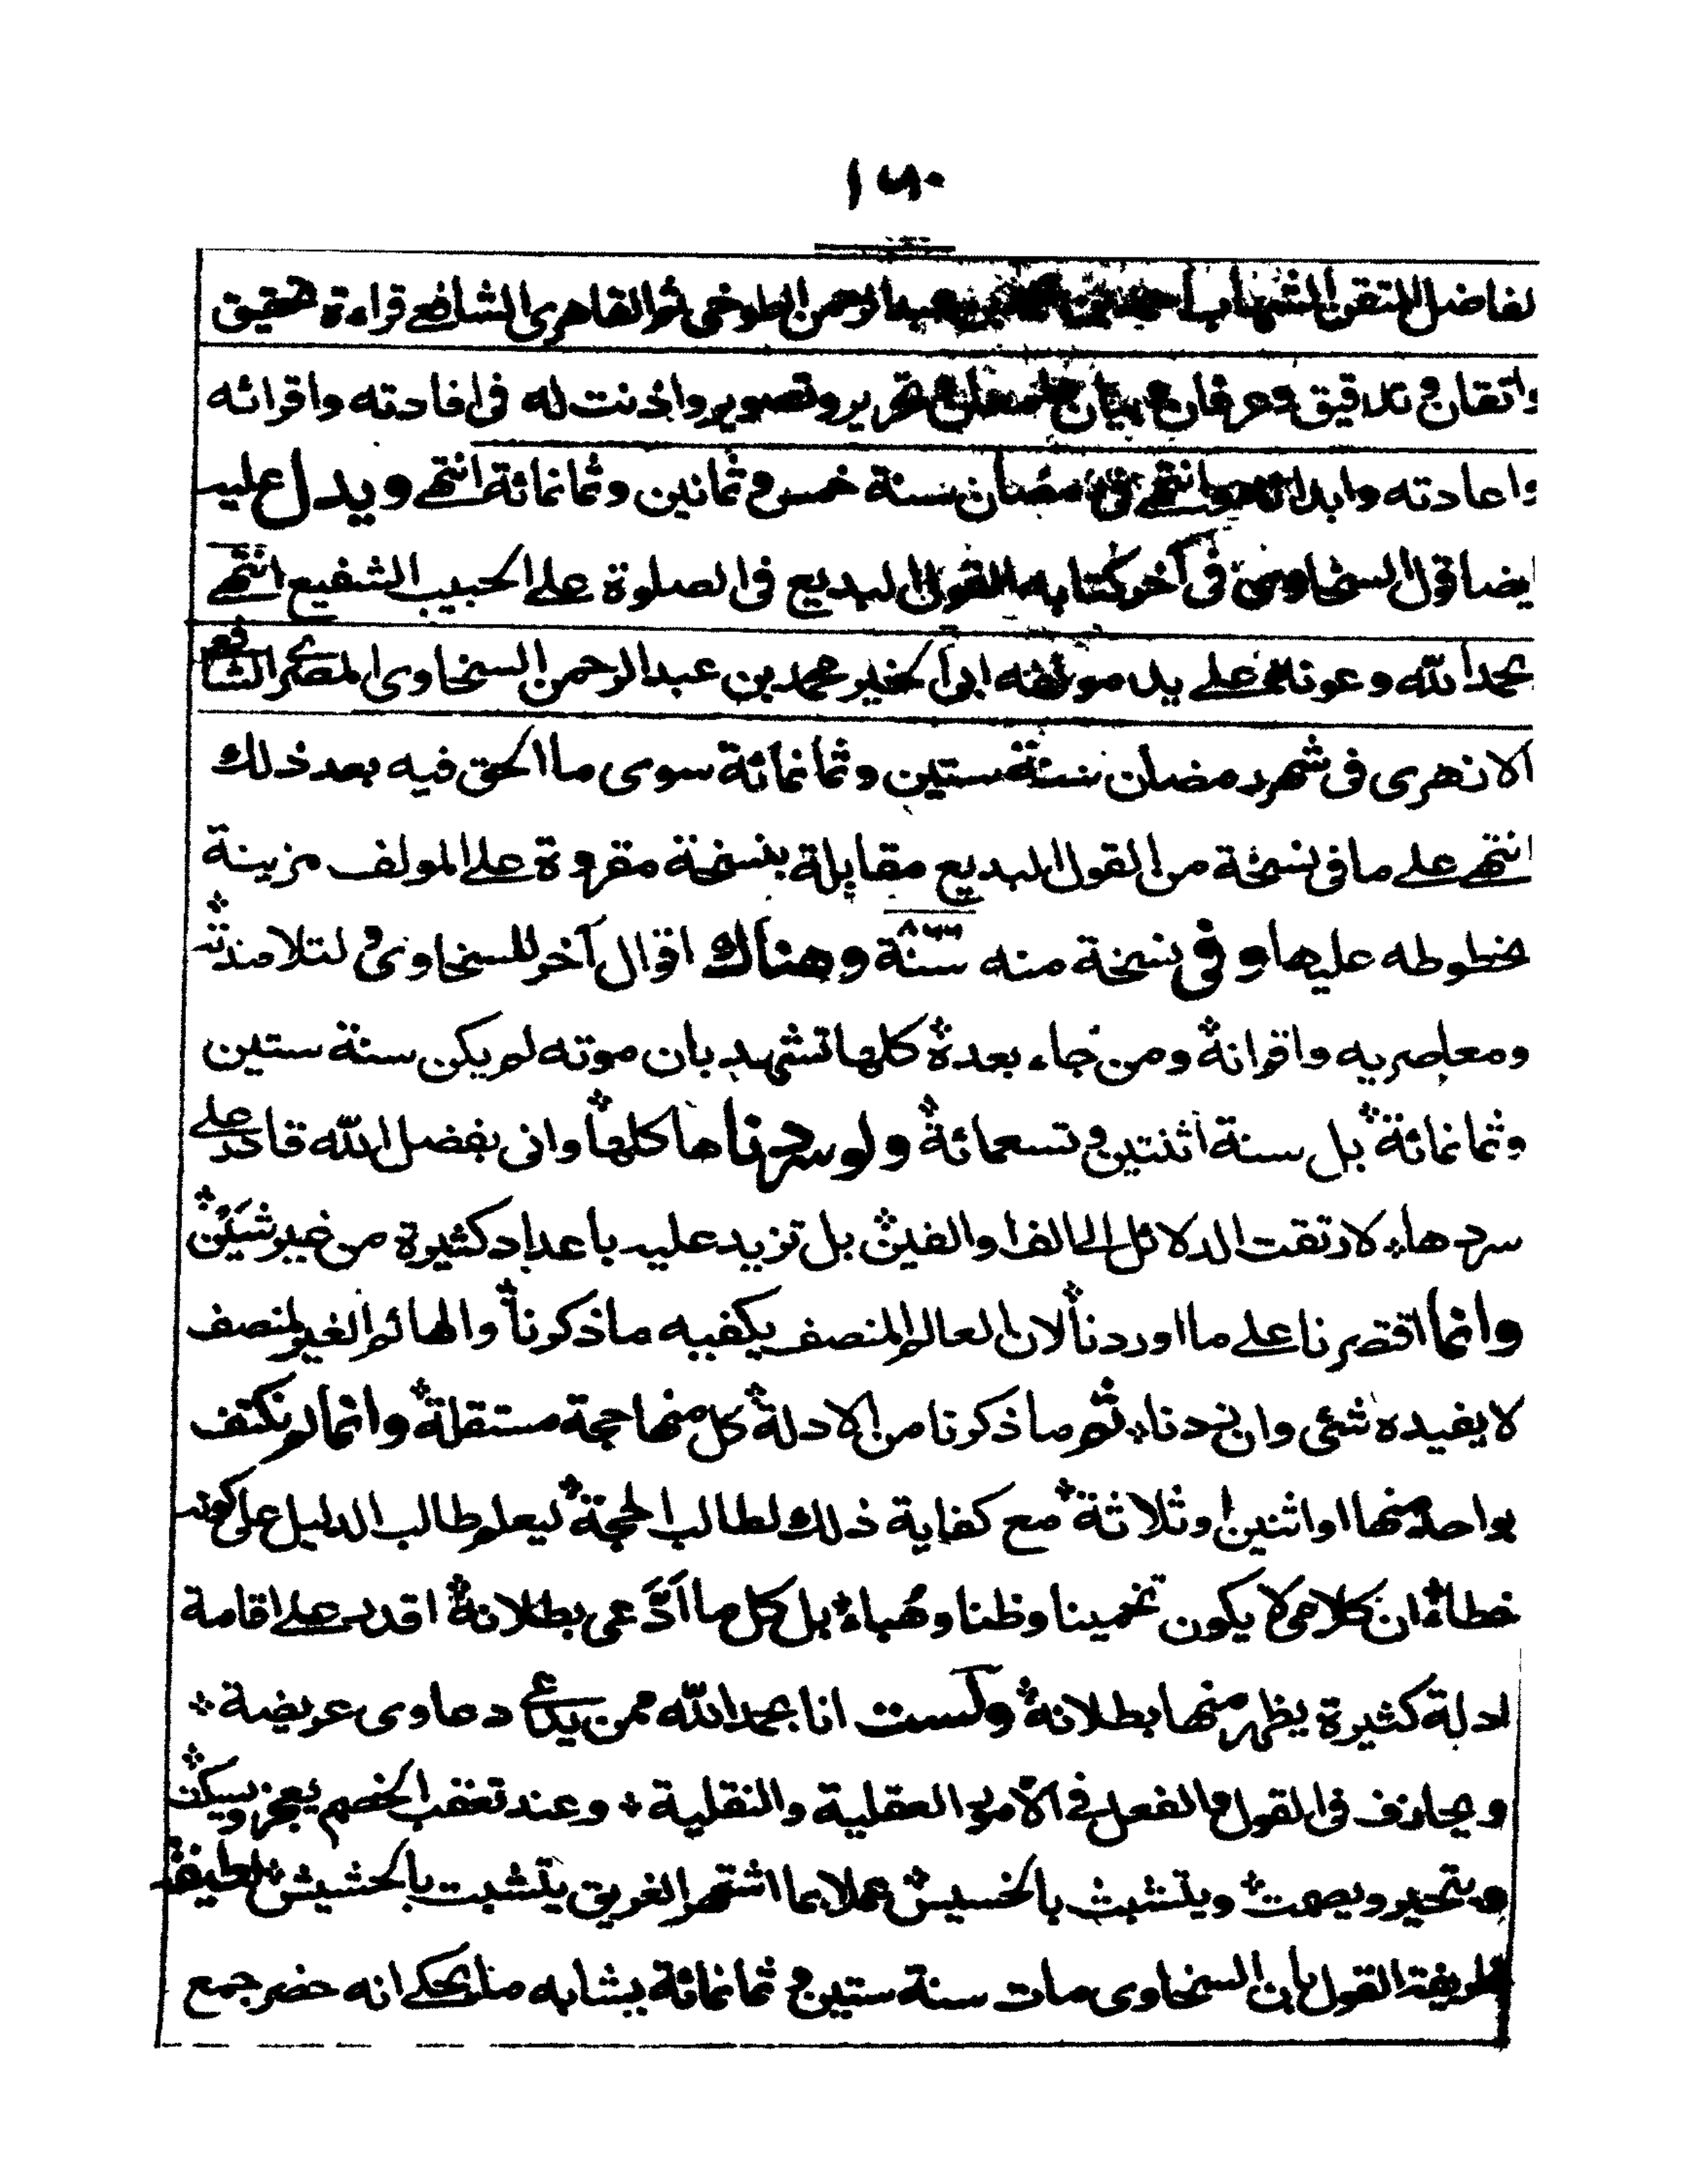 ١٦٠
لفاضل المتقن الشهاب احمد بن عبدالرحمن الطوخى ثم القاهرى الشافعى قراءة تحقيق
واتقان وتدقيق وعرفان وبيان وتحرير وتصوير واذنت له فى افادته واقرائه
واعادته وابدائه وانتهى فى رمضان سنة خمس وثمانين وثمانمائة انتهى ويدل عليه
ايضا قول السخاوى فى آخر كتابه القول البديع فى الصلوة على الحبيب الشفيع انتهى
بحمد الله وعونه على يد مؤلفه ابى الخير محمد بن عبدالرحمن السخاوى المصرى الشافعى
الازهرى فى شهر رمضان سنة ستين وثمانمائة سوى ما الحق فيه بعد ذلك
انتهى على ما فى نسخة من القول البديع مقابلة بنسخة مقروة على المولف مزينة
بخطوطه عليها وفى نسخة منه سنة وهناك اقوال آخر للسخاوى ولتلامذته
ومعاصريه واقرانه ومن جاء بعدة كلها تشهد بان موته لم يكن سنة ستين
وثمانمائة بل سنة اثنتين وتسعمائة ولو سردناها كلها وانى بفضل الله قادر على
سردها لارتقت الدلائل الى الف او الفين بل تزيد عليه باعداد كثيرة من غير شين
وانما اقتصرنا على ما اوردنا لان العالم المنصف يكفيه ما ذكرنا والهائم الغير المنصف
لا يفيده شئى وان زدنا ثم ما ذكرنا من الادلة كل منها حجة مستقلة وانما لم نكتف
بواحد منها او اثنين او ثلاثة مع كفاية ذلك لطالب الحجة ليعلم طالب الدليل على كونه
خطاء ان كلامى لا يكون تخمينا وظنا وهباء بل كل ما ادّعى بطلانه اقدر على اقامة
ادلة كثيرة يظهر منها بطلانه ولست انا بحمد الله ممن يدعى دعاوى عريضة
ويجازف فى القول والفعل فى الامور العقلية والنقلية وعند تعقب الخصم يعجز ويسكت
ويتحير ويصمت ويتشبث بالخسيس عملا بما اشتهر الغريق يتشبت بالحشيش لطيفة
ظريفة القول بان السخاوى مات سنة ستين وثمانمائة يشابه ما يحكى انه حضر جمع